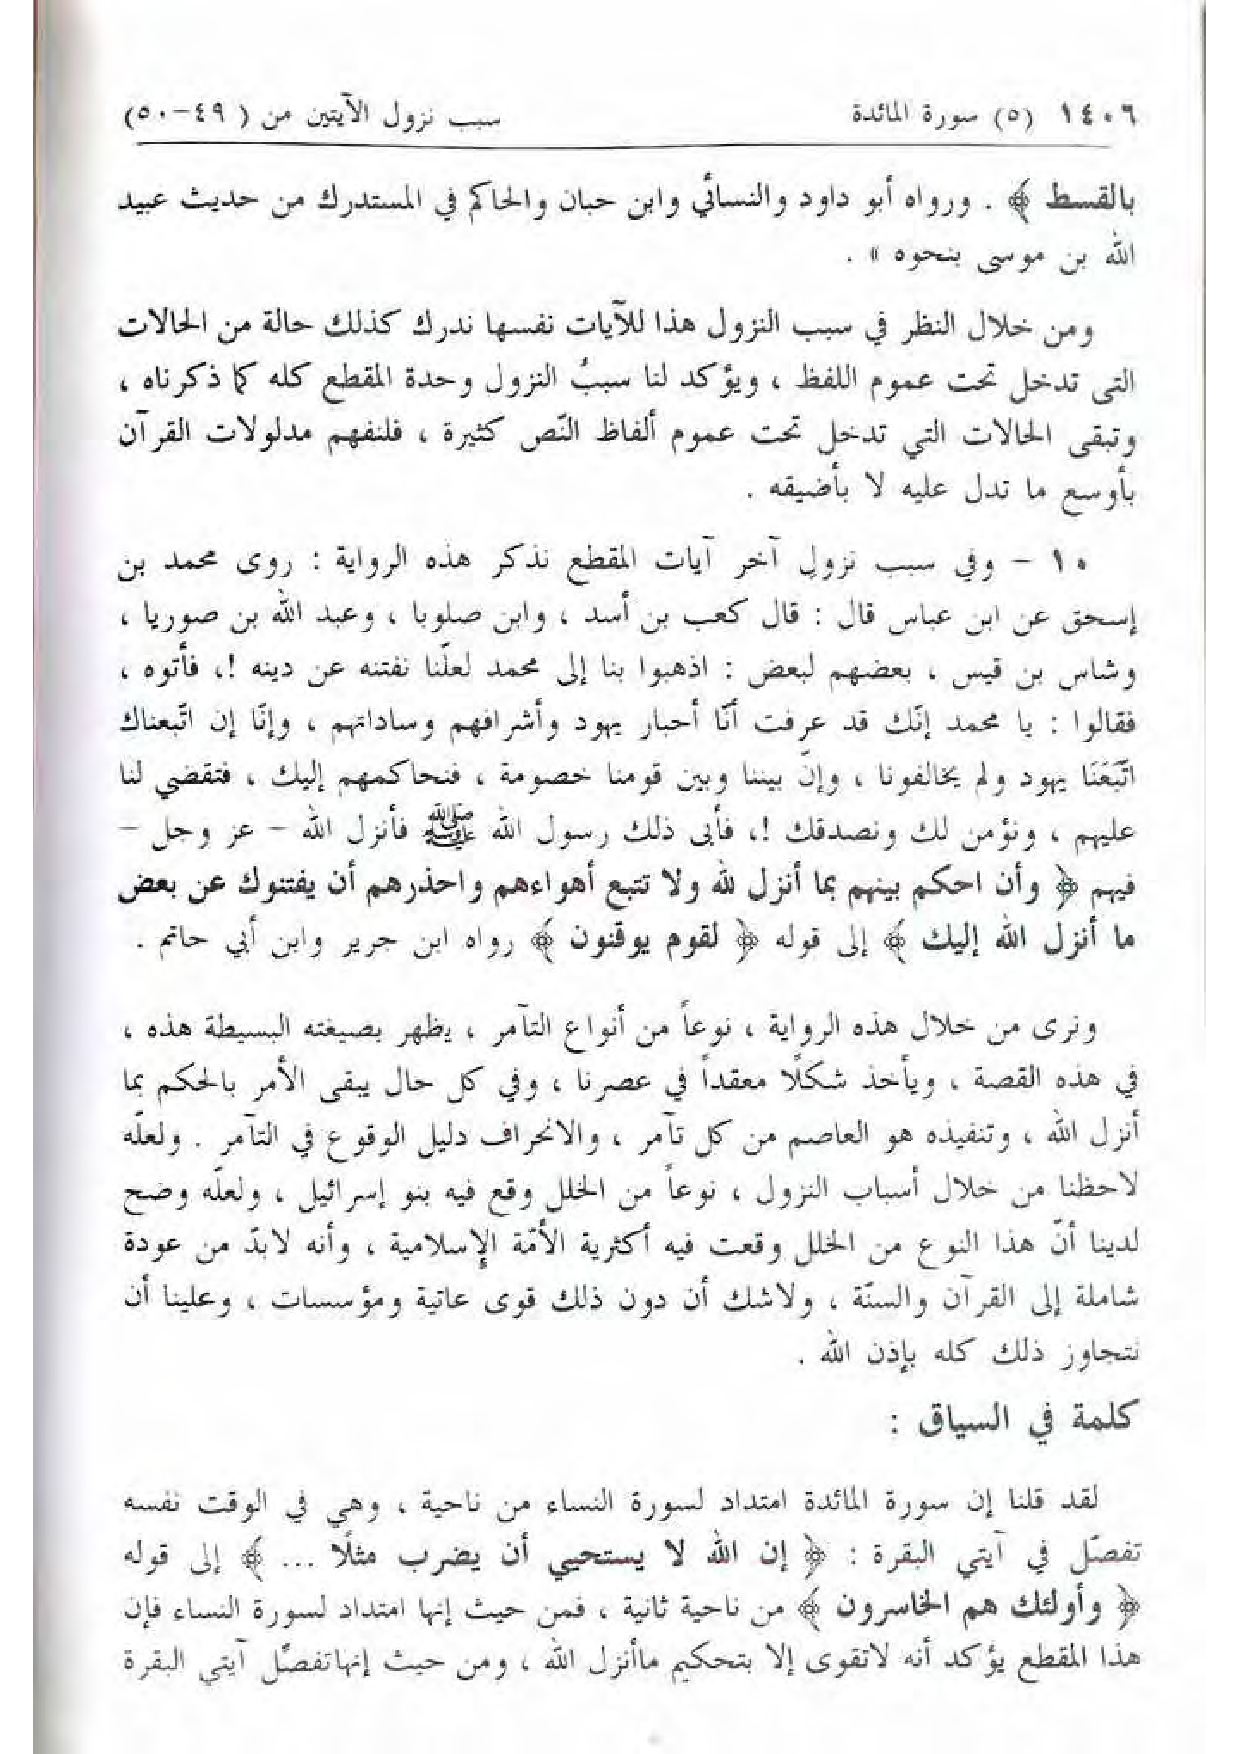 ١٤٠٦ (٥) سورة المائدة سبب نزول الآيتين من ( ٤٩-٥٠)
بالقسط ﴾ . ورواه أبو داود والنسائي وابن حبان والحاكم في المستدرك من حديث عبيد
الله بن موسى بنحوه » .
ومن خلال النظر في سبب النزول هذا للآيات نفسها ندرك كذلك حالة من الحالات
التى تدخل تحت عموم اللفظ ، ويؤكد لنا سببُ النزول وحدة المقطع كله كما ذكرناه ،
وتبقى الحالات التي تدخل تحت عموم ألفاظ النّص كثيرة ، فلنفهم مدلولات القرآن
بأوسع ما تدل عليه لا بأضيقه .
١٠ – وفي سبب نزول آخر آيات المقطع نذكر هذه الرواية : روى محمد بن
إسحق عن ابن عباس قال : قال كعب بن أسد ، وابن صلوبا ، وعبد الله بن صوريا ،
وشاس بن قيس ، بعضهم لبعض : اذهبوا بنا إلى محمد لعلّنا نفتنه عن دينه !، فأتوه ،
فقالوا : يا محمد إنّك قد عرفت أنّا أحبار يهود وأشرافهم وساداتهم ، وإنّا إن اتّبعناك
اتّبَعَنَا يهود ولم يخالفونا ، وإنّ بيننا وبين قومنا خصومة ، فنحاكمهم إليك ، فتقضي لنا
عليهم ، ونؤمن لك ونصدقك !، فأبى ذلك رسول الله ﷺ فأنزل الله – عز وجل –
فيهم ﴿ وأن احكم بينهم بما أنزل لله ولا تتبع أهواءهم واحذرهم أن يفتنوك عن بعض
ما أنزل الله إليك ﴾ إلى قوله ﴿ لقوم يوقنون ﴾ رواه ابن جرير وابن أبي حاتم .
ونرى من خلال هذه الرواية ، نوعاً من أنواع التآمر ، يظهر بصيغته البسيطة هذه ،
في هذه القصة ، ويأخذ شكلًا معقداً في عصرنا ، وفي كل حال يبقى الأمر بالحكم بما
أنزل الله ، وتنفيذه هو العاصم من كل تآمر ، والانحراف دليل الوقوع في التآمر . ولعلّه
لاحظنا من خلال أسباب النزول ، نوعاً من الخلل وقع فيه بنو إسرائيل ، ولعلّه وضح
لدينا أنّ هذا النوع من الخلل وقعت فيه أكثرية الأمّة الإسلامية ، وأنه لابدّ من عودة
شاملة إلى القرآن والسنّة ، ولاشك أن دون ذلك قوى عاتية ومؤسسات ، وعلينا أن
نتجاوز ذلك كله بإذن الله .
كلمة في السياق :
لقد قلنا إن سورة المائدة امتداد لسورة النساء من ناحية ، وهي في الوقت نفسه
تفصّل في آيتي البقرة : ﴿ إن الله لا يستحيي أن يضرب مثلًا ... ﴾ إلى قوله
﴿ وأولئك هم الخاسرون ﴾ من ناحية ثانية ، فمن حيث إنها امتداد لسورة النساء فإن
هذا المقطع يؤكد أنه لاتقوى إلا بتحكيم ماأنزل الله ، ومن حيث إنهاتفصّل آيتي البقرة